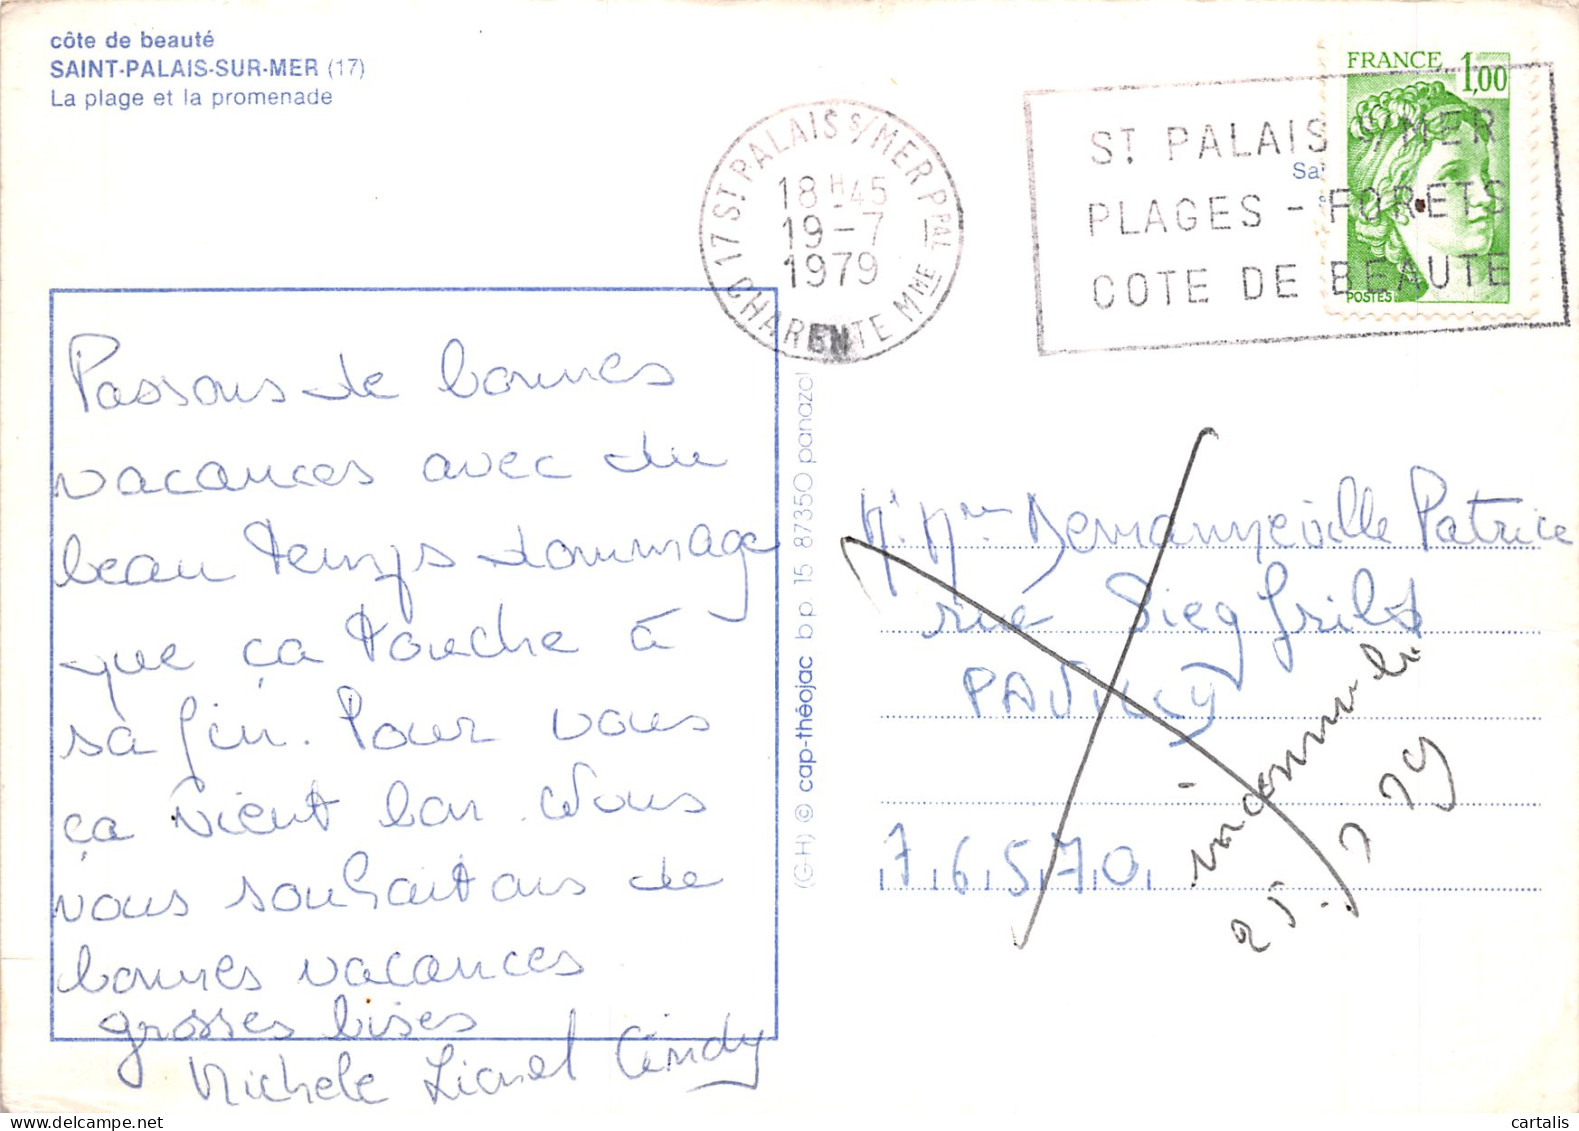 côte de beauté
SAINT-PALAIS-SUR-MER (17)
La plage et la promenade
17 ST PALAIS S/MER PPAL
18H45
19-7
1979
CHARENTE MME
FRANCE 1,00
POSTES
ST PALAIS S/MER
PLAGES - FORETS
COTE DE BEAUTE
Sa
Passons de bonnes
vacances avec du
beau temps dommage
que ça touche à
sa fin. Pour vous
ça vient bon. Nous
vous souhaitons de
bonnes vacances
grosses bises
Michele Lionel Cindy
(G-H) © cap-théojac b.p. 15 87350 panazol
Mr Mme Demanneville Patrice
rue Siegfried
PAVILLY
76570
inconnu